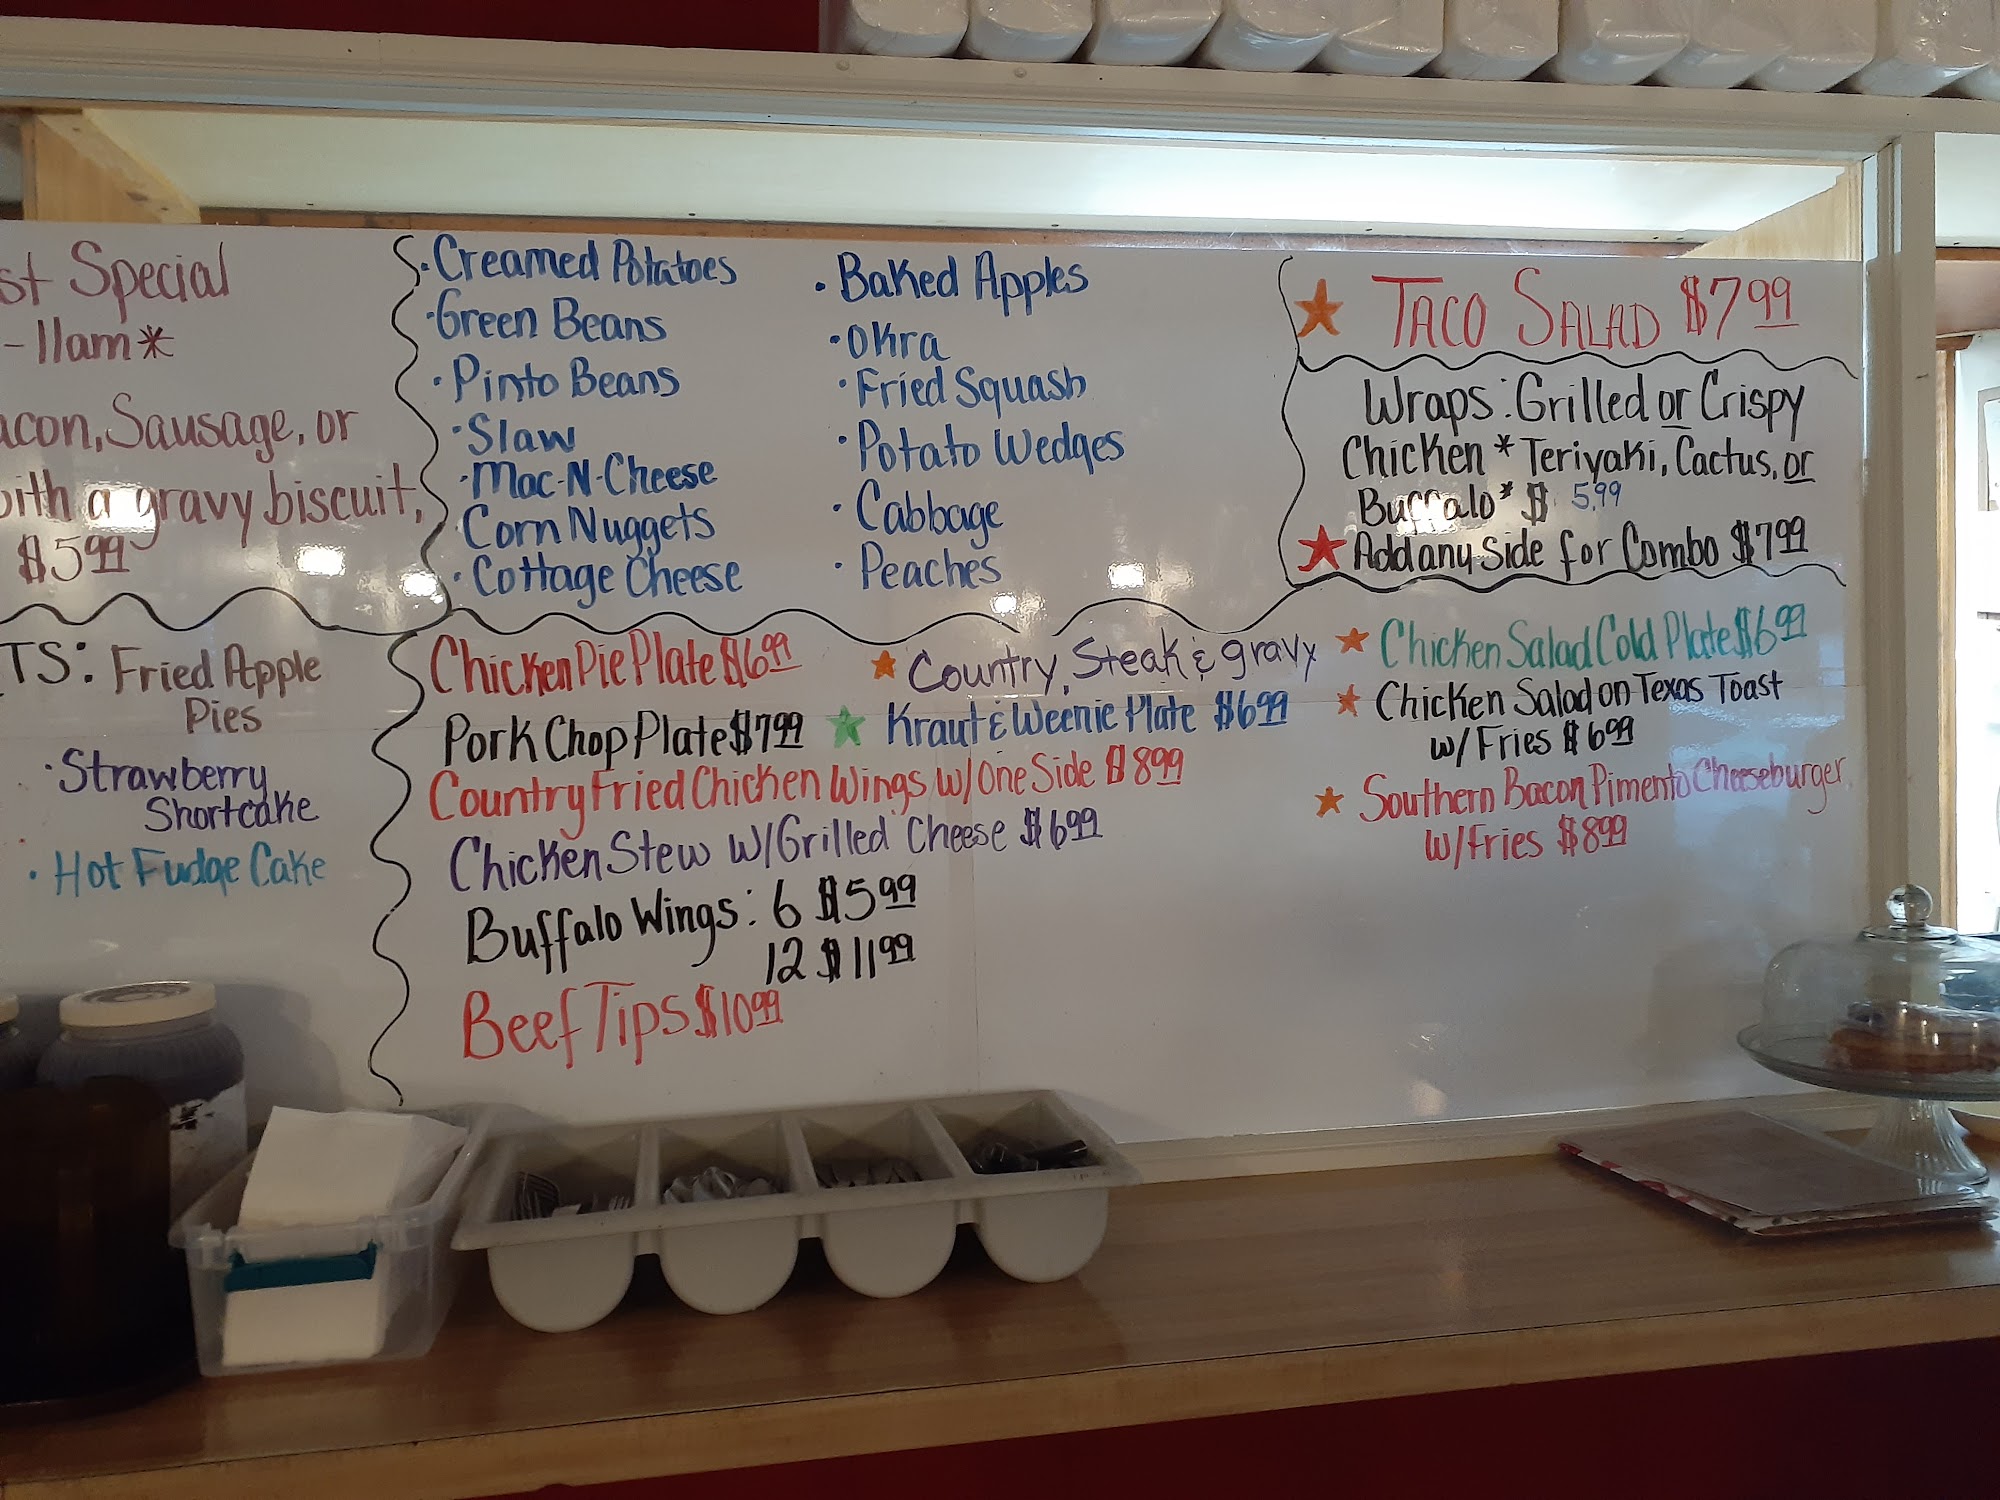 st Special
- 11am*
acon, Sausage, or
with a gravy biscuit,
$5.99
TS: Fried Apple
Pies
· Strawberry
Shortcake
· Hot Fudge Cake
· Creamed Potatoes
· Green Beans
· Pinto Beans
· Slaw
· Mac-N-Cheese
Corn Nuggets
· Cottage Cheese
· Baked Apples
· Okra
· Fried Squash
· Potato Wedges
· Cabbage
· Peaches
Taco Salad $7.99
Wraps: Grilled or Crispy
Chicken * Teriyaki, Cactus, or
Buffalo* $ 5.99
Add any Side for Combo $7.99
Chicken Pie Plate $6.99
Pork Chop Plate $7.99
Country Fried Chicken Wings w/ One Side $8.99
Chicken Stew w/ Grilled Cheese $6.99
Buffalo Wings: 6 $5.99
12 $11.99
Beef Tips $10.99
Country Steak & gravy
Kraut & Weenie Plate $6.99
Chicken Salad Cold Plate $6.99
Chicken Salad on Texas Toast
w/ Fries $6.99
Southern Bacon Pimento Cheeseburger
w/ Fries $8.99